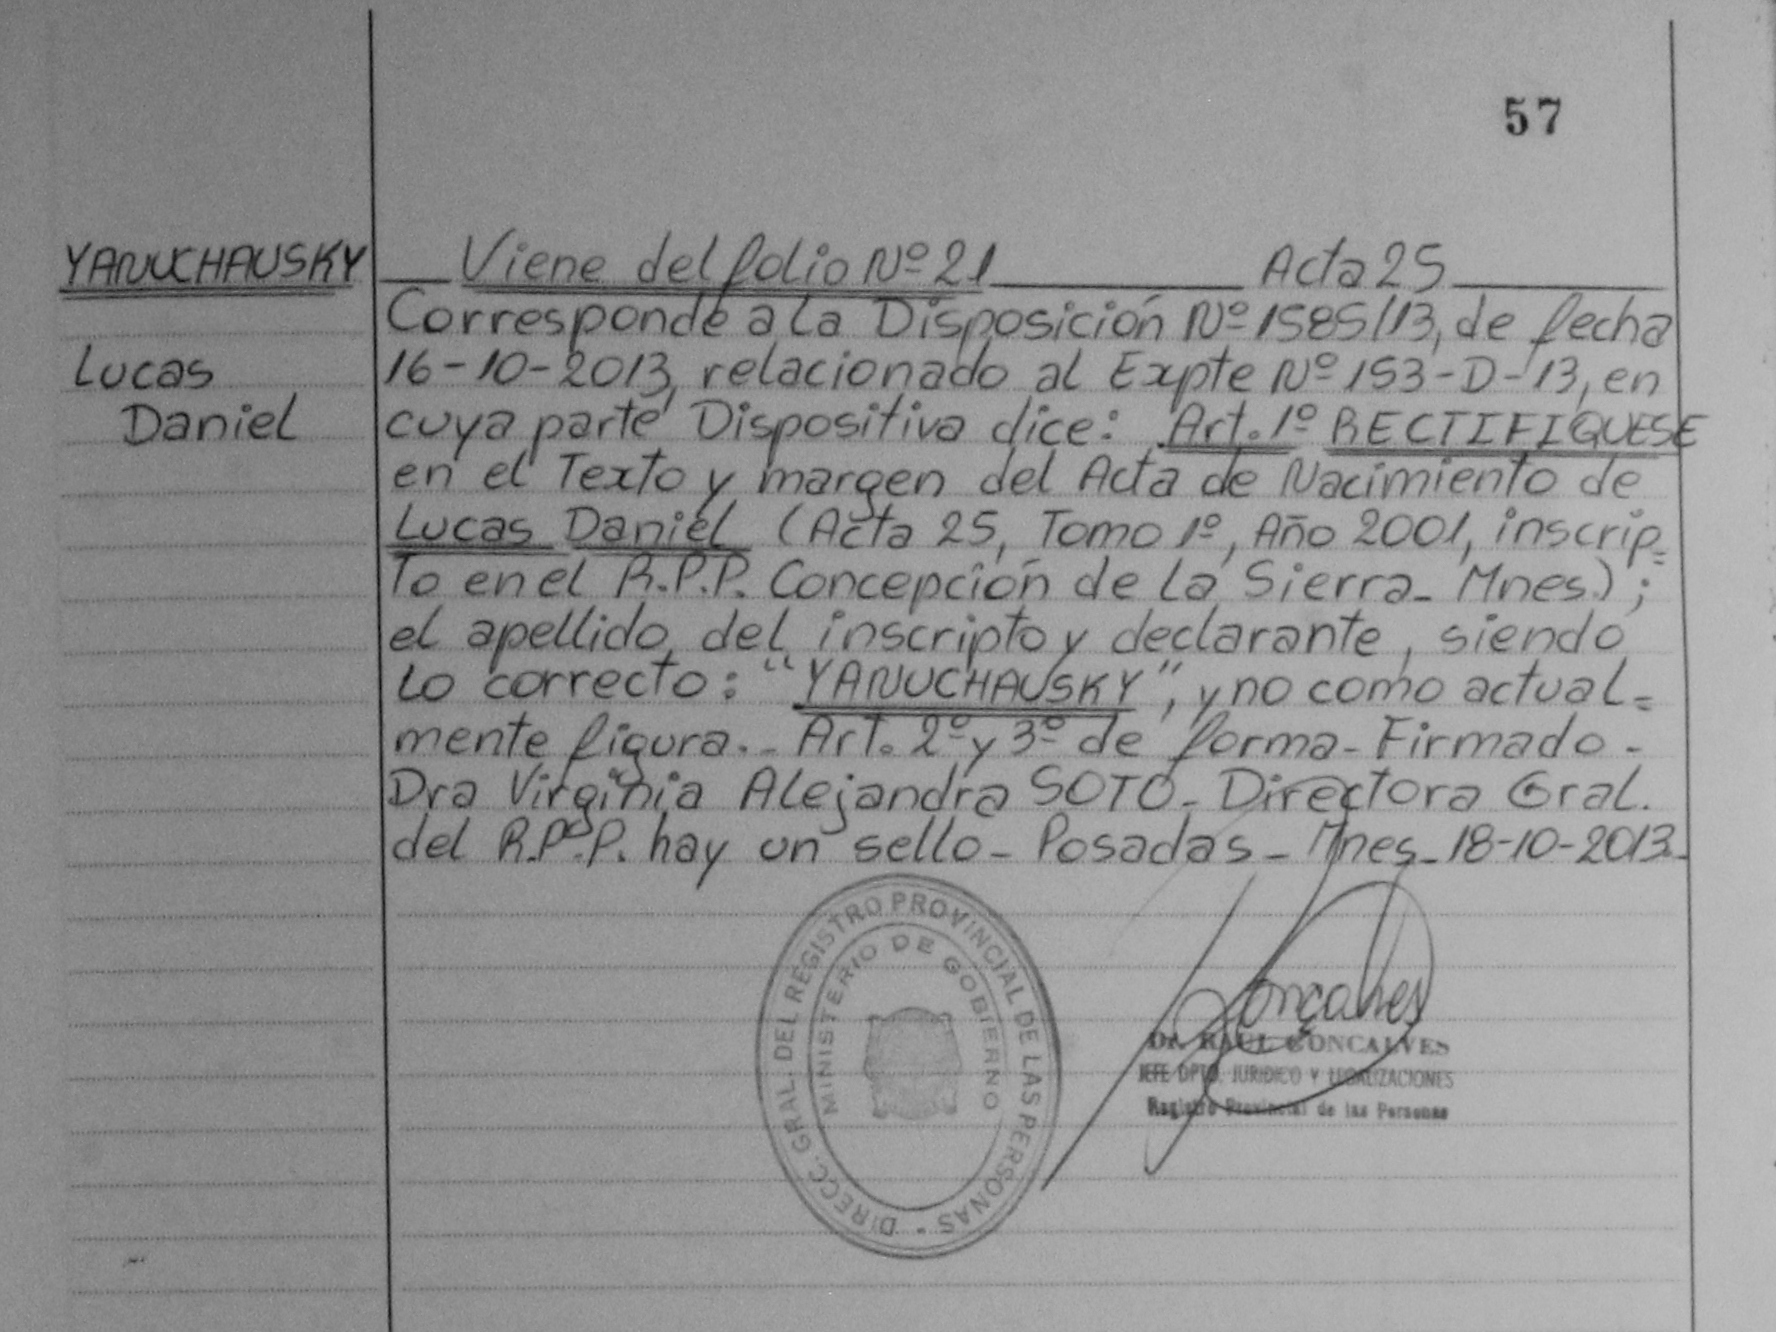 57
YANUCHAUSKY
Lucas
Daniel
Viene del folio Nº 21 Acta 25
Corresponde a la Disposición Nº 1585/13, de fecha
16-10-2013, relacionado al Expte Nº 153-D-13, en
cuya parte Dispositiva dice: Art. 1º RECTIFIQUESE
en el Texto y margen del Acta de Nacimiento de
Lucas Daniel (Acta 25, Tomo 1º, Año 2001, inscrip=
to en el R.P.P. Concepción de la Sierra_ Mnes.);
el apellido del inscripto y declarante, siendo
lo correcto: "YANUCHAUSKY", y no como actual=
mente figura._ Art. 2º y 3º de forma_ Firmado_
Dra Virginia Alejandra SOTO_ Directora Gral.
del R.P.P. hay un sello_ Posadas_ Mnes_ 18-10-2013_
DIRECC. GRAL. DEL REGISTRO PROVINCIAL DE LAS PERSONAS -
MINISTERIO DE GOBIERNO
Gonçalves
Dr. RAUL GONCALVES
JEFE DPTO. JURIDICO Y LEGALIZACIONES
Registro Provincial de las Personas